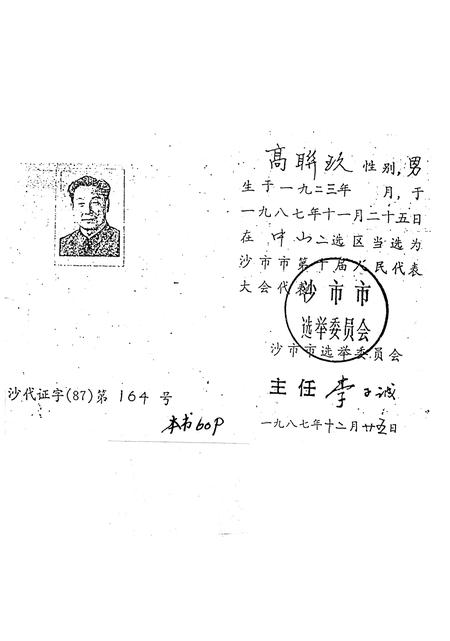 高聯玖 性别,男
生于一九二三年 月,于
一九八七年十一月二十五日
在 中山二选区当选为
沙市市第十届人民代表
大会代表
沙市市
选举委员会
沙市市选举委员会
主任 李子诚
一九八七年十二月廿五日
沙代证字(87)第 164 号
本书60P